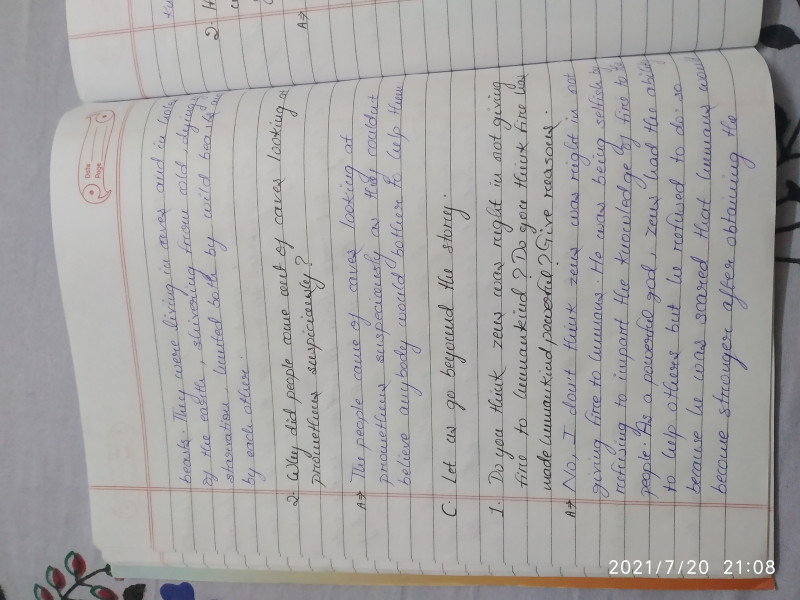 Date
Page
beasts. They were living in caves and in holes
of the earth, shivering from cold, dying of
starvation, hunted both by wild beasts and
by each other.
2. Why did people come out of caves looking at
promethius suspiciously?
A→ The people came of caves looking at
promethius suspeciously as they couldn't
believe anybody would bother to help them
C. Let us go beyound the story.
1. Do you think zeus was right in not giving
fire to humankind? Do you think fire has
made humankind powerful? Give reasons.
A→ No, I don't think zeus was right in not
giving fire to humans. He was being selfish by
refusing to impart the knowledge of fire to the
people. As a powerful god, zeus had the ability
to help others but he refused to do so
because he was scared that humans would
become stronger after obtaining the
2. H
A→
2021/7/20 21:08